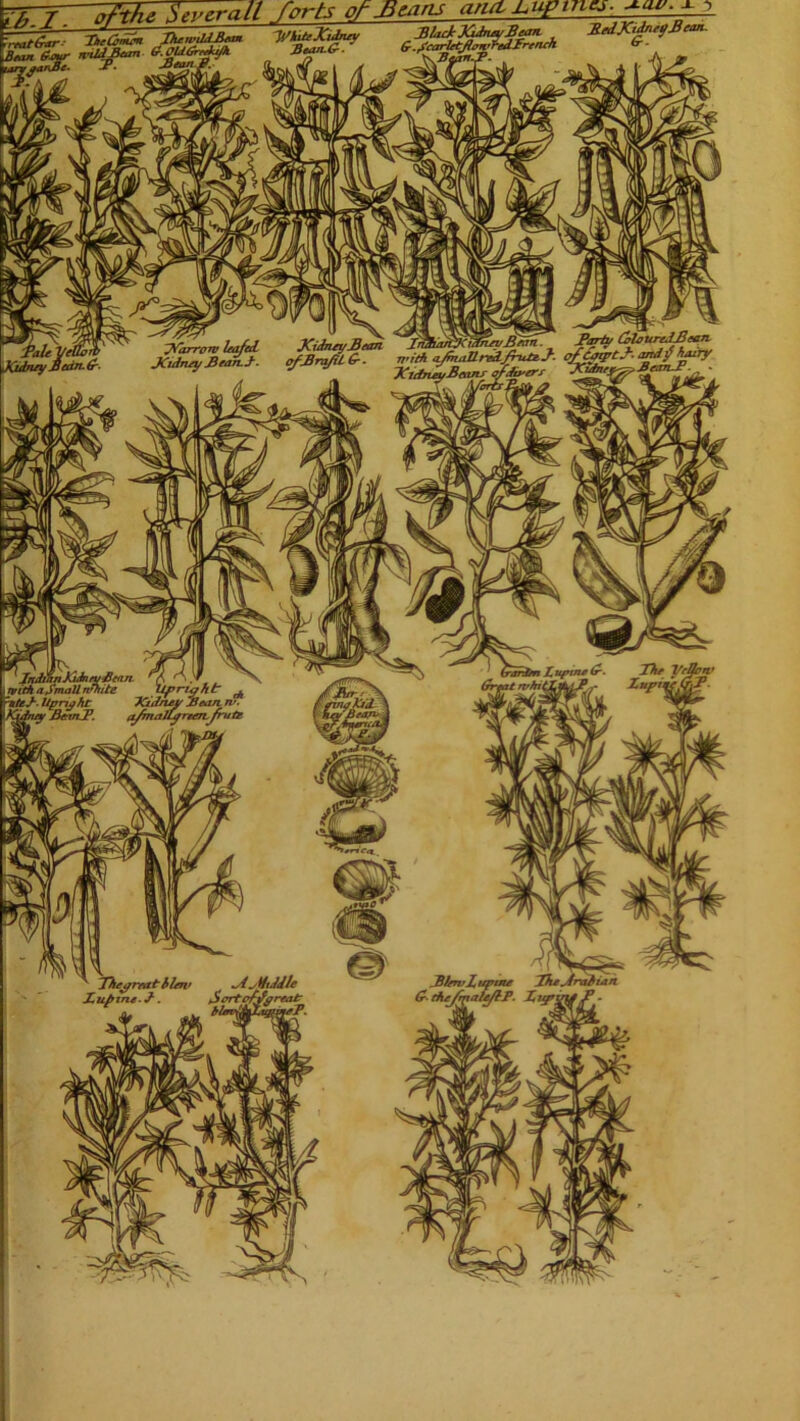 of the Severall sorts of Beans and Lupines. Tab. 15
Great Gar:
Bean &our
The Comõn
wild Bean
P.
The wild Bean
G. Old Greekish
Bean P.
White Kidney
Bean. G.
Black Kidney Bean
G. Scarlet flowr Red French
Bean. P.
Red Kidney Bean.
G.
Pale Yellow
Kidney Bean. G.
Narrow leafed
Kidney Bean. J.
Kidney Bean
of Brasil G.
Indian Kidney Bean.
with a small red frute J.
Kidney Beans of divers
sorts P.
Party Coloured Bean
of J. and ÿ hairy
Kidney Bean P.
Indian Kidney Bean
with a Small white
frute J. Upright
Kidney Bean P.
Upright
Kidney Bean wt.
a small green frute
ging Kid
ney Beans
of America
Garden Lupine G.
Great white P.
The Yellow
Lupine G P.
The great blew
Lupine. J.
A Middle
Sort of ÿ great
blew Lupine P.
Blew Lupine
G. the smalest P.
The Arabian
Lupine P.